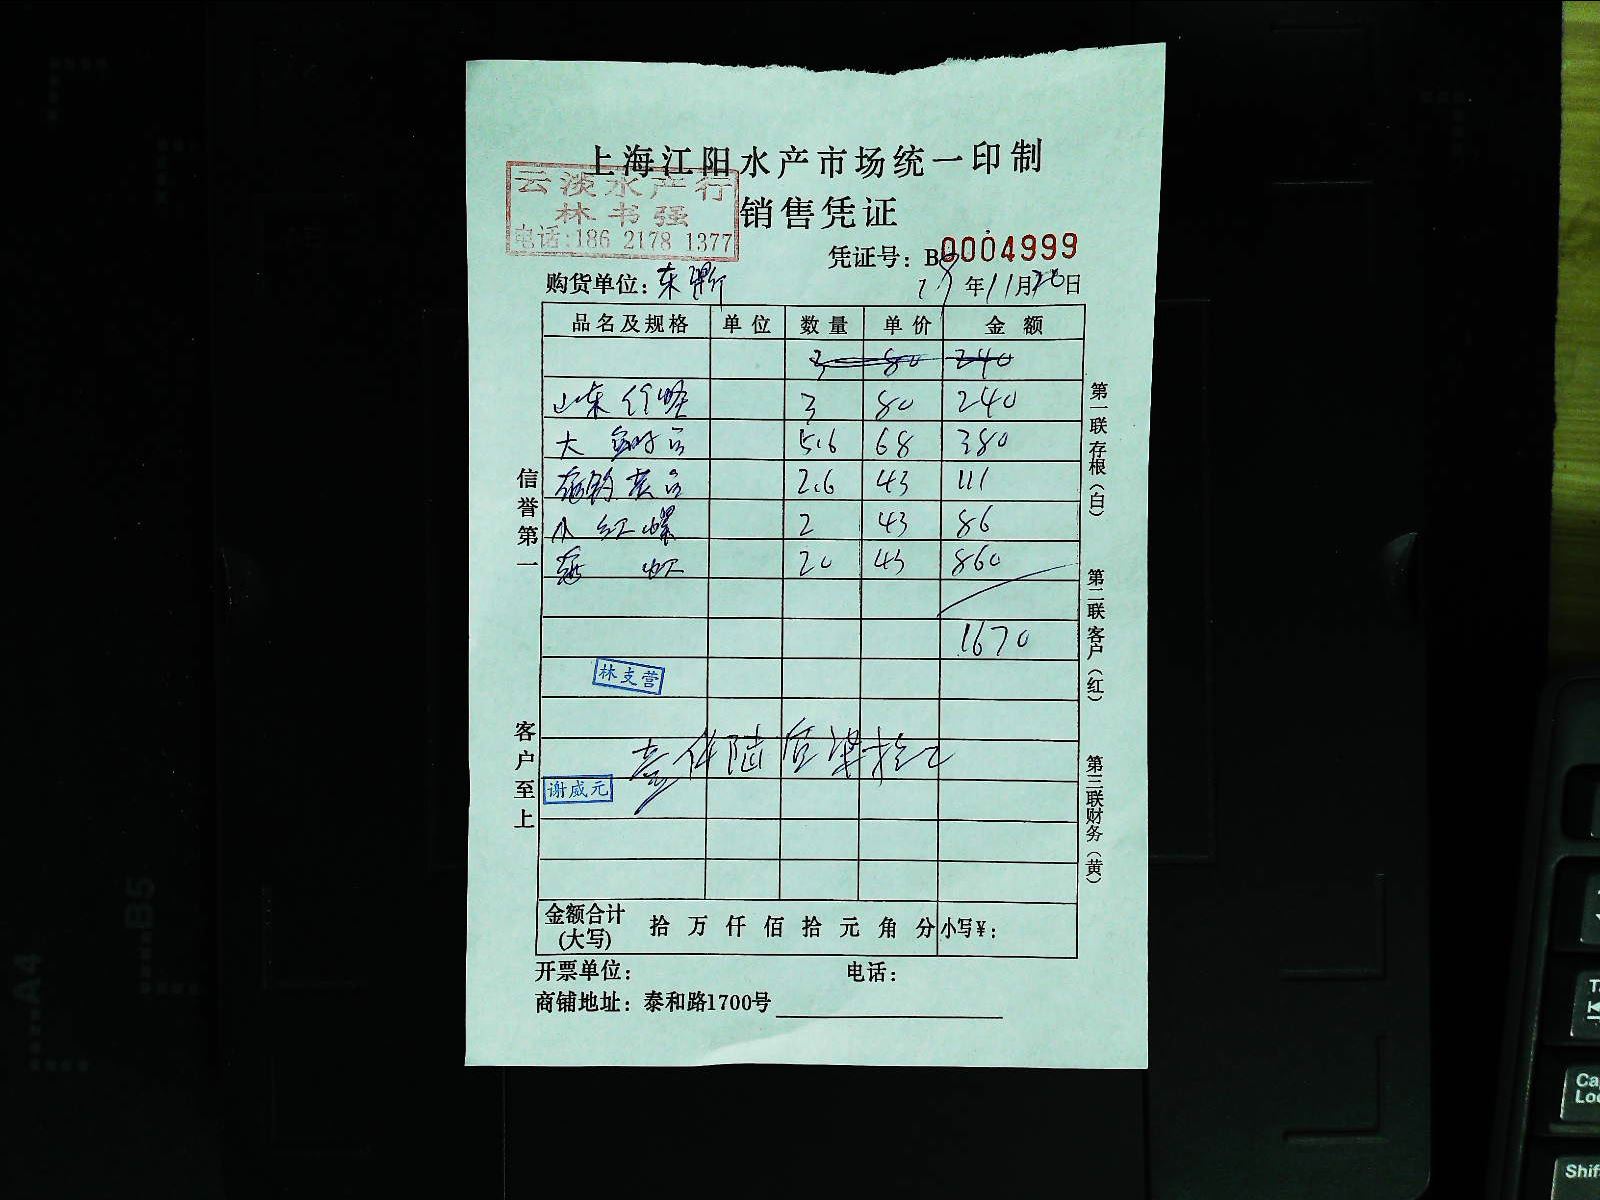 上海江阳水产市场统一印制
云淡水产行
林书强
电话:186 2178 1377
销售凭证
凭证号：B 0004999
购货单位：东
年11月20日
品名及规格 单位 数量 单价 金额
3 80 240
山东 3 80 240
大 5.6 68 380
2.6 43 111
小红螺 2 43 86
20 43 860
1670
林支营
壹仟陆百柒拾元
谢威元
金额合计(大写) 拾 万 仟 佰 拾 元 角 分 小写¥：
开票单位： 电话：
商铺地址：泰和路1700号
信誉第一
客户至上
第一联存根（白）
第二联客户（红）
第三联财务（黄）
A4
B5
Ca
Loc
Shif